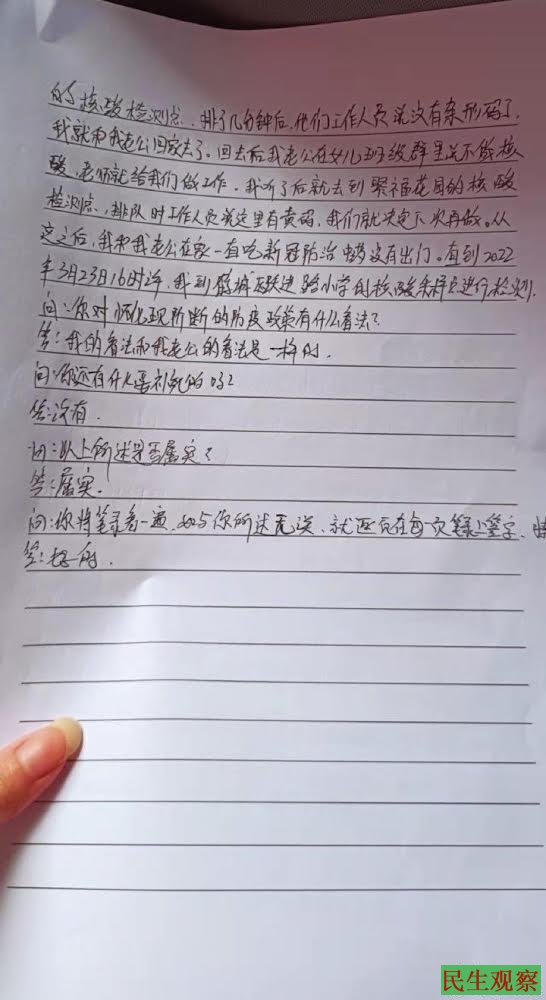 的核酸检测点,排了几分钟后,他们工作人员说没有条形码了,
我就和我老公回家去了。回去后我老公在女儿班级群里说不做核
酸,老师就给我们做工作,我听了后就去到聚福花园的核酸
检测点,排队时工作人员说这里有黄码,我们就决定下次再做。从
这之后,我和我老公在家一直吃新冠防治 没有出门。直到2022
年3月23日16时许,我到 城 跃进路小学的核酸采样点进行检测.
问:你对怀化现阶断的防疫政策有什么看法?
答:我的看法和我老公的看法是一样的.
问:你还有什么要补充的吗?
答:没有.
问:以上所述是否属实?
答:属实.
问:你将笔录看一遍,如与你所述无误,就 在每一页笔录上签字,
答:好的.
民生观察